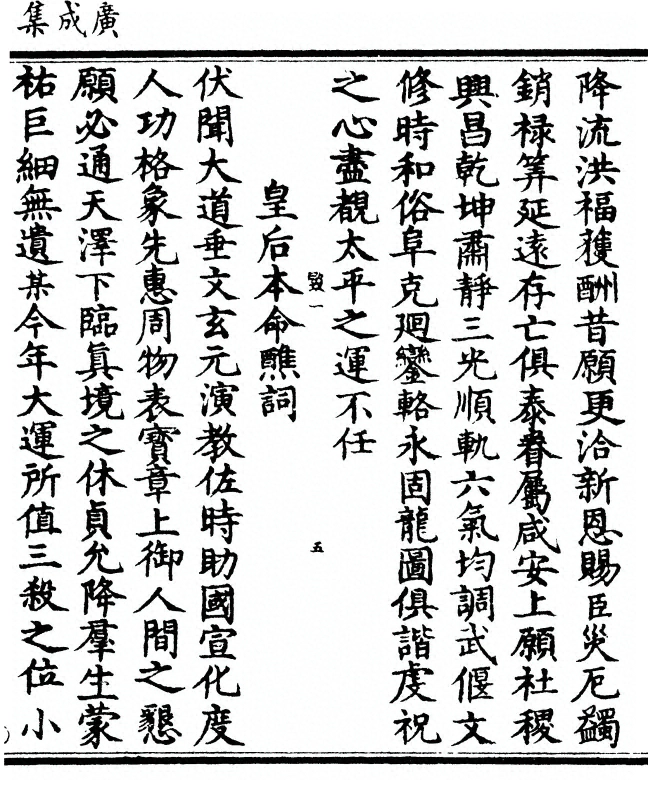 廣成集
降流洪福獲酬昔願更洽新恩賜臣災厄蠲
銷祿筭延遠存亡俱泰眷屬咸安上願社稷
興昌乾坤肅靜三光順軌六氣均調武偃文
修時和俗阜克廻鑾輅永固龍圖俱諧虔祝
之心盡覩太平之運不任
毀一
五
皇后本命醮詞
伏聞大道垂文玄元演教佐時助國宣化度
人功格象先惠周物表寶章上御人間之懇
願必通天澤下臨眞境之休貞允降羣生蒙
祐巨細無遺某今年大運所值三殺之位小